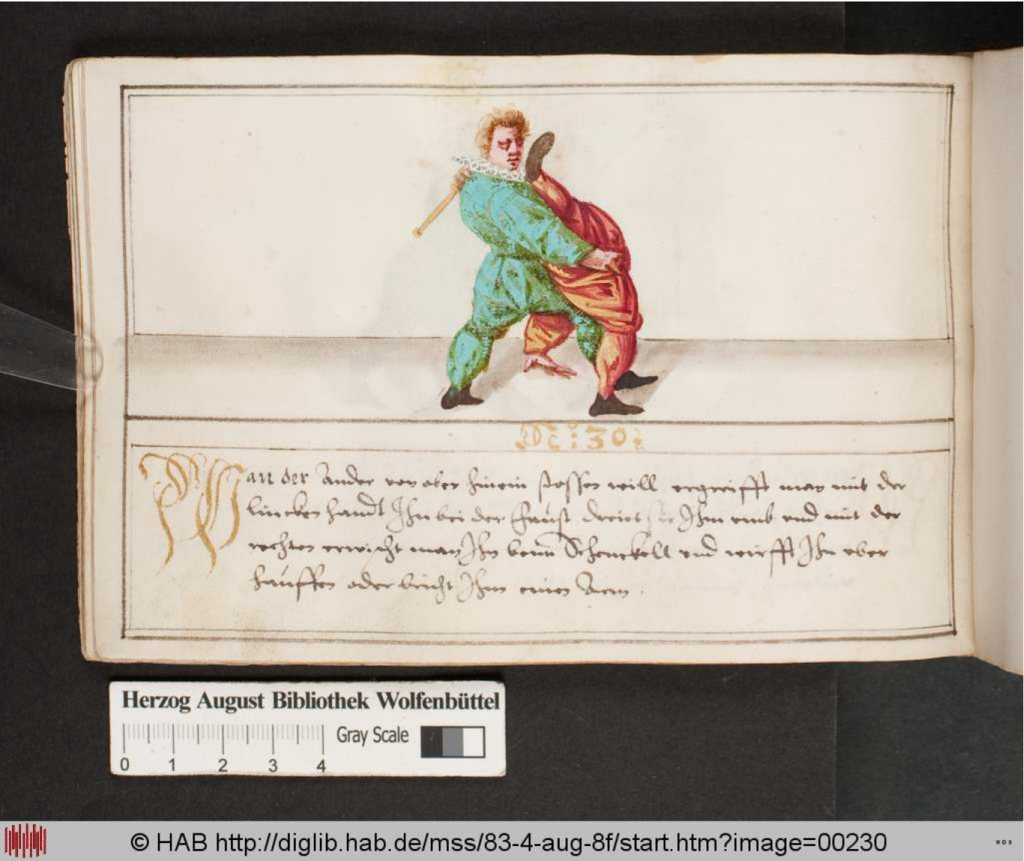 N̊: 30:
Wan der Ander von oben hinein stossen will ergreifft man mit der
lincken handt Ihn bei der faust dreiet sie Ihm umb und mit der
rechten erwischt man Ihn beim Schenckell und wirfft Ihn uber
hauffen oder bricht Ihm einen Arm.
Herzog August Bibliothek Wolfenbüttel
Gray Scale
0 1 2 3 4
© HAB http://diglib.hab.de/mss/83-4-aug-8f/start.htm?image=00230